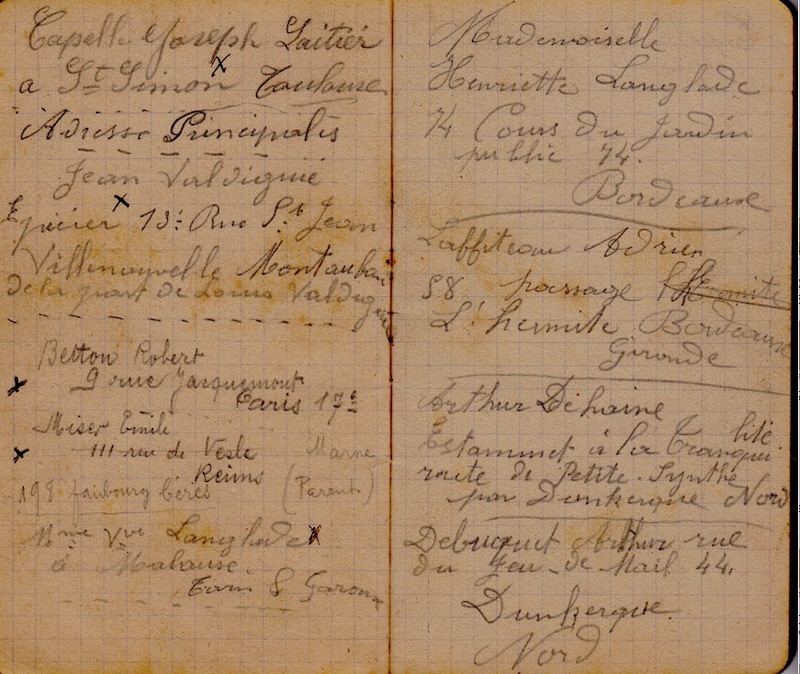 Capelle Joseph Laitier
a St Simon Toulouse
Adresse Principales
Jean Valdiguié
Epicier 13: Rue St Jean
Villenouvelle Montauban
de la part de Louis Valdiguié
Betton Robert
9 rue Jacquemont
Paris 17e
Miser Emile
111 rue de Vesle Marne
Reims
198 faubourg Cérès (Parent.)
Mme Vve Langlade
à Malause.
Tarn & Garonne
Mademoiselle
Henriette Langlade
74 Cours du Jardin
public 74.
Bordeaux
Laffiteau Adrien
58 passage l'Hermite
L'hermite Bordeaux
Gironde
Arthur Dehaine
Estaminet à la Tranquilité
route de Petite-Synthe
par Dunkerque Nord
Debuquet Arthur rue
du Jeu-de-Mail 44.
Dunkerque.
Nord